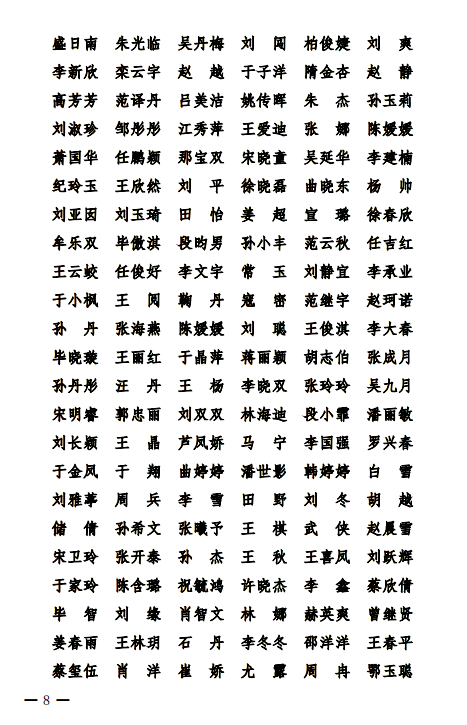 盛日南 朱光临 吴丹梅 刘闯 柏俊婕 刘爽
李新欣 栾云宇 赵越 于子洋 隋金杏 赵静
高芳芳 范译丹 吕美洁 姚传晖 朱杰 孙玉莉
刘淑珍 邹彤彤 江秀萍 王爱迪 张娜 陈媛媛
萧国华 任鹏颖 那宝双 宋晓童 吴延华 李建楠
纪玲玉 王欣然 刘平 徐晓磊 曲晓东 杨帅
刘亚因 刘玉琦 田怡 姜超 宣璐 徐春欣
牟乐双 毕傲淇 段昀男 孙小丰 范云秋 任吉红
王云蛟 任俊好 李文字 常玉 刘静宜 李承业
于小枫 王阅 鞠丹 寇密 范继宇 赵珂诺
孙丹 张海燕 陈媛媛 刘聪 王俊淇 李大春
毕晓璇 王丽红 于晶萍 蒋丽颖 胡志伯 张成月
孙丹彤 汪丹 王杨 李晓双 张玲玲 吴九月
宋明睿 郭忠丽 刘双双 林海迪 段小霏 潘丽敏
刘长颖 王晶 芦凤娇 马宁 李国强 罗兴春
于金凤 于翔 曲婷婷 潘世影 韩婷婷 白雪
刘雅葶 周兵 李雪 田野 刘冬 胡越
储倩 孙希文 张曦予 王棋 武侠 赵晨雪
宋卫玲 张开泰 孙杰 王秋 王喜凤 刘跃辉
于家玲 陈含璐 祝毓鸿 许晓杰 李鑫 蔡欣倩
毕智 刘缘 肖智文 林娜 赫英爽 曾继贤
姜春雨 王林玥 石丹 李冬冬 邵洋洋 王春平
蔡玺伍 肖洋 崔娇 尤露 周冉 鄂玉聪
— 8 —